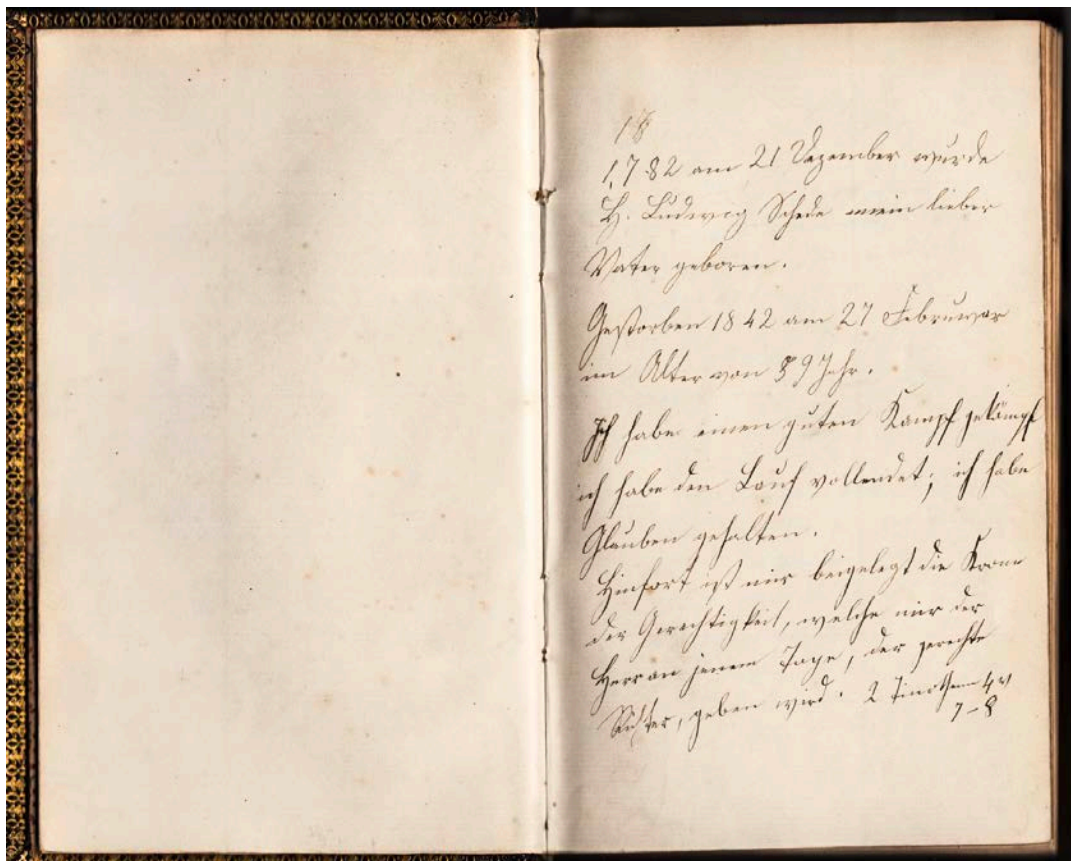 18
1782 am 21 Dezember wurde
H. Ludwig Schede mein lieber
Vater geboren.
Gestorben 1842 am 27 Februar
im Alter von 59 Jahr.
Ich habe einen guten Kampf gekämpf
ich habe den Lauf vollendet; ich habe
Glauben gehalten.
Hinfort ist mir beigelegt die Krone
der Gerechtigkeit, welche mir der
Herr an jenem Tage, der gerechte
Richter, geben wird. 2 Timotheum 4 v
7-8